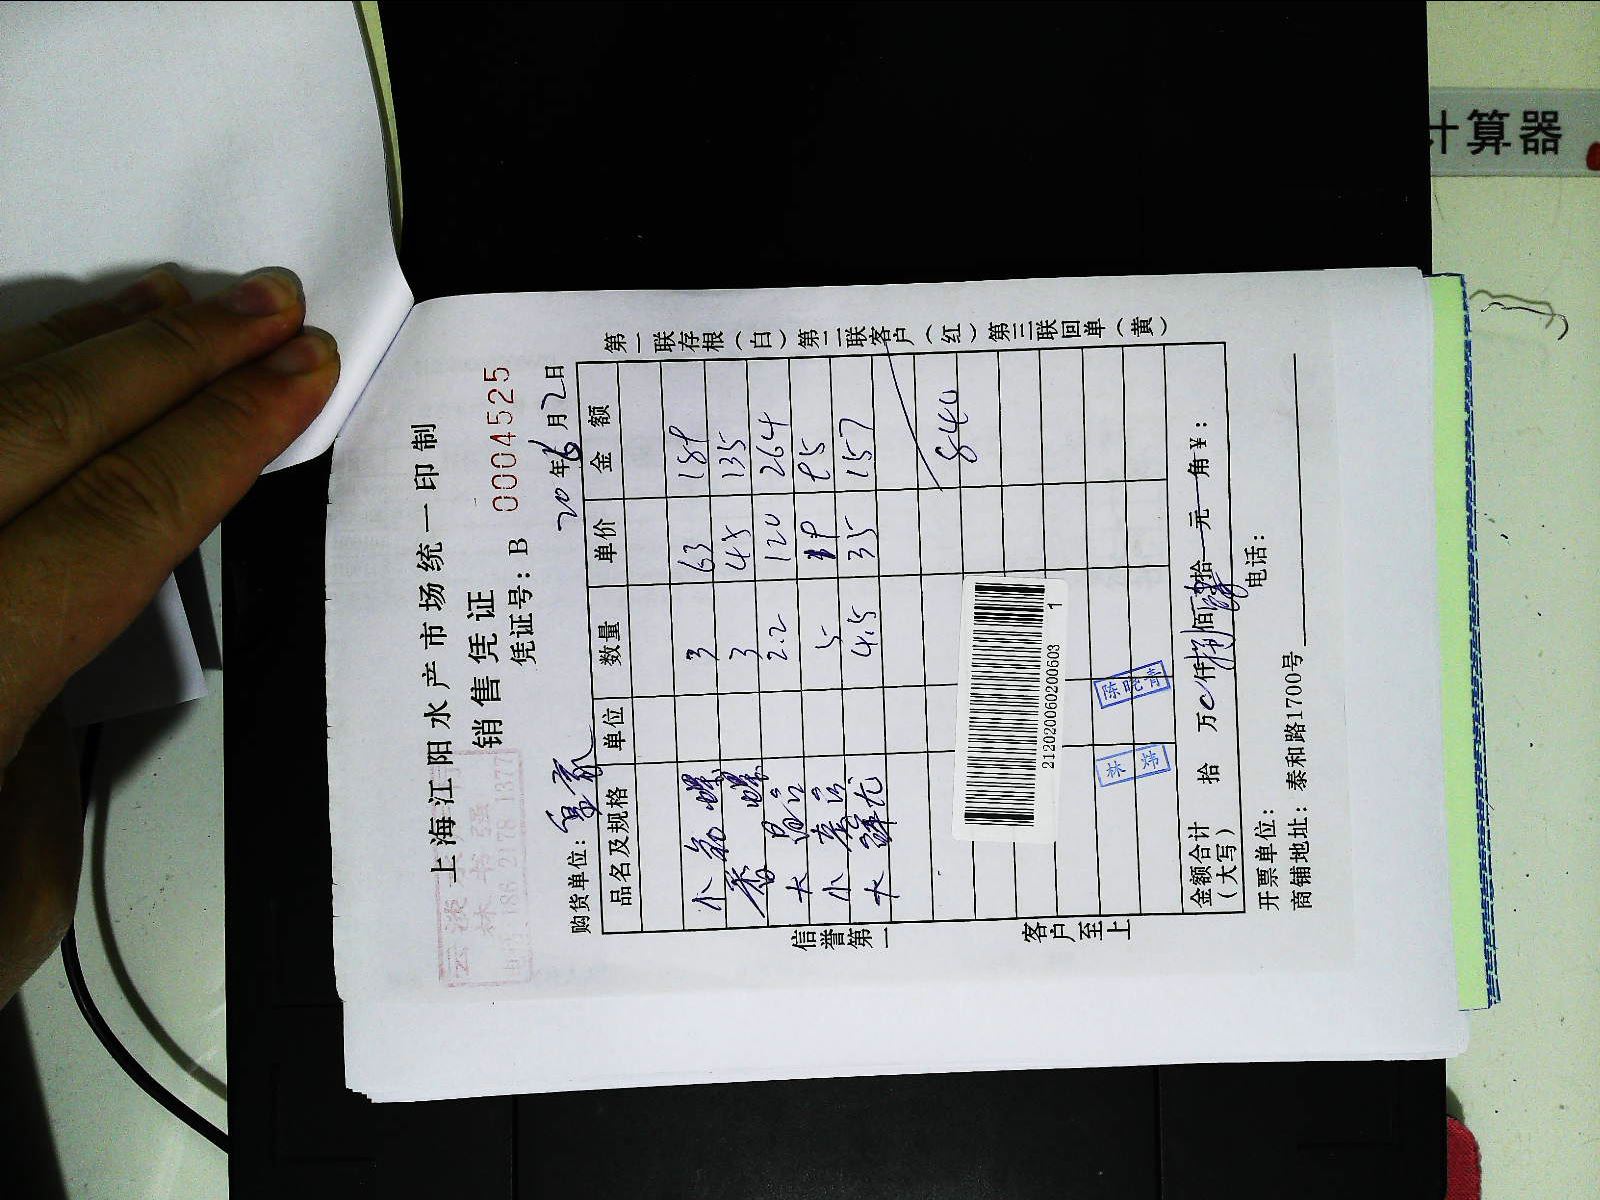 计算器
上海江阳水产市场统一印制
销售凭证
凭证号：B 0004525
林书强
186 2178 1377
购货单位：
20年6月2日
品名及规格 单位 数量 单价 金额
小 螺 3 63 189
香螺 3 45 135
大 2.2 120 264
小 5 19 95
大鲜尤 4.5 35 157
840
第一联存根（白）第二联客户（红）第三联回单（黄）
信誉第一
客户至上
212020060200603
1
林炜
陈晓菁
金额合计（大写） 拾 万 仟 佰 拾 元 角 ¥：
开票单位： 电话：
商铺地址：泰和路1700号